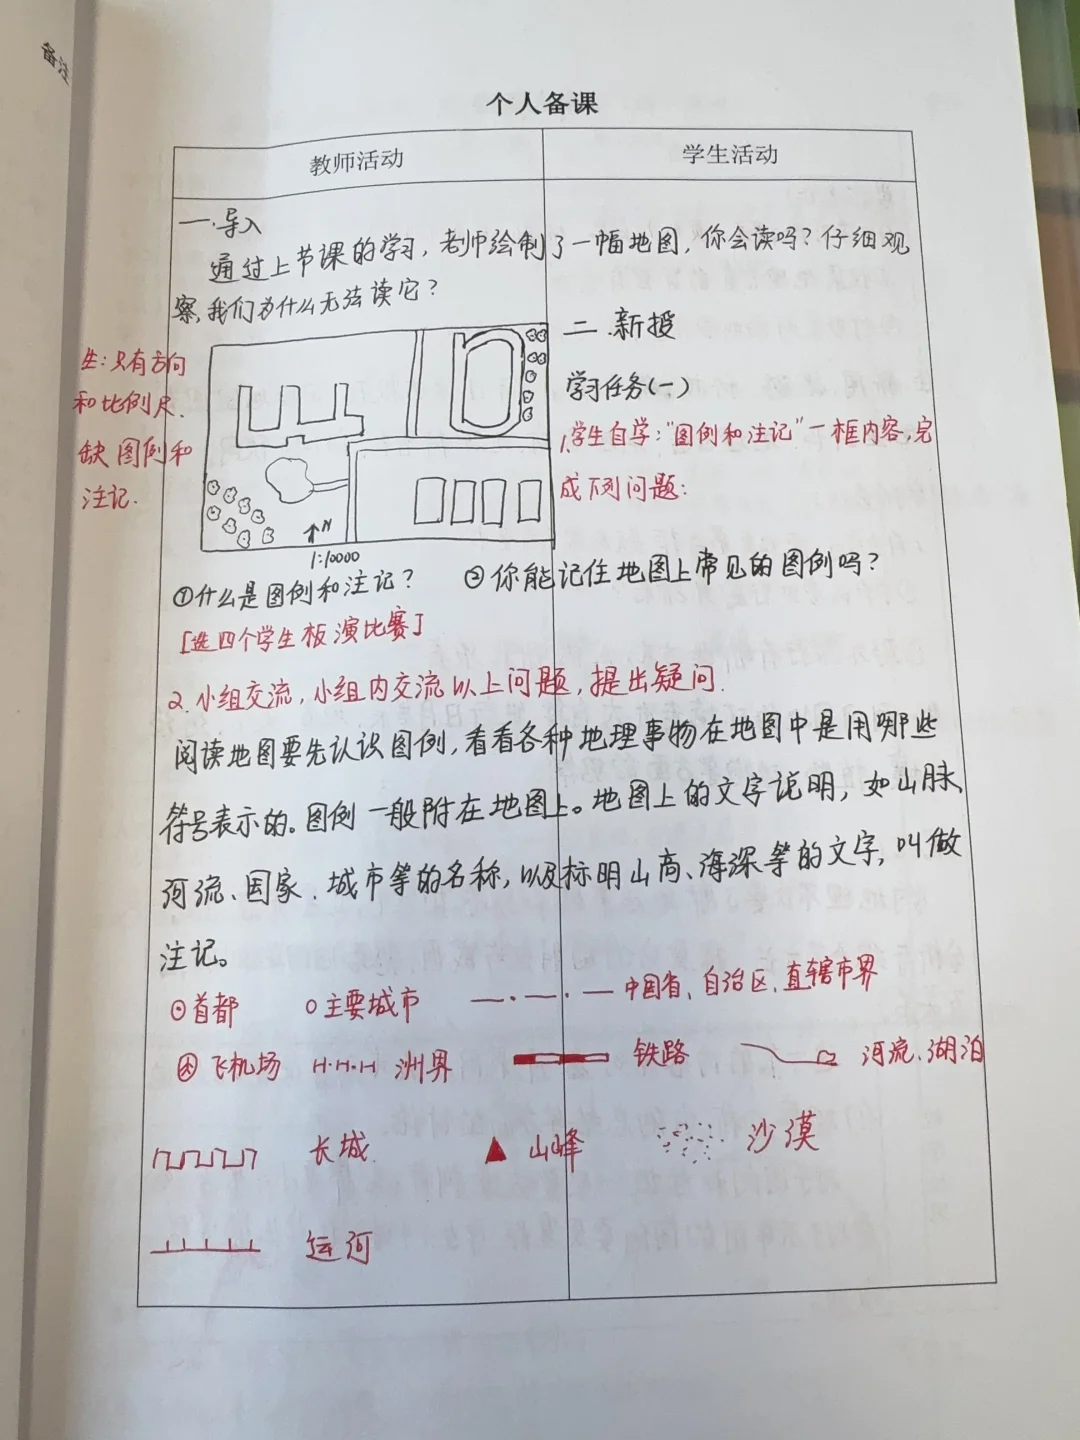 备注
个人备课
教师活动
学生活动
一.导入
通过上节课的学习，老师绘制了一幅地图，你会读吗？仔细观
察，我们为什么无法读它？
生：只有方向
和比例尺.
缺图例和
注记.
N
1:10000
二.新授
学习任务(一)
1.学生自学："图例和注记"一框内容，完
成下列问题：
①什么是图例和注记？ ②你能记住地图上常见的图例吗？
[选四个学生板演比赛]
2.小组交流，小组内交流以上问题，提出疑问.
阅读地图要先认识图例，看看各种地理事物在地图中是用哪些
符号表示的。图例一般附在地图上。地图上的文字说明，如山脉、
河流、国家、城市等的名称，以及标明山高、海深等的文字，叫做
注记。
首都 主要城市 中国省、自治区、直辖市界
飞机场 洲界 铁路 河流、湖泊
长城 山峰 沙漠
运河